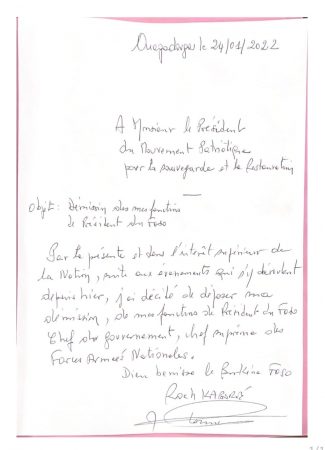 Ouagadougou le 24/01/2022
A Monsieur le Président
du Mouvement Patriotique
pour la sauvegarde et la Restauration
Objet : Démission de mes fonctions
de Président du Faso
Par la présente et dans l'intérêt supérieur de
la Nation, suite aux évenements qui s'y déroulent
depuis hier, j'ai décidé de déposer ma
démission, de mes fonctions de Président du Faso
Chef du gouvernement, chef suprême des
Forces Armées Nationales.
Dieu benisse le Burkina Faso
Roch KABORÉ